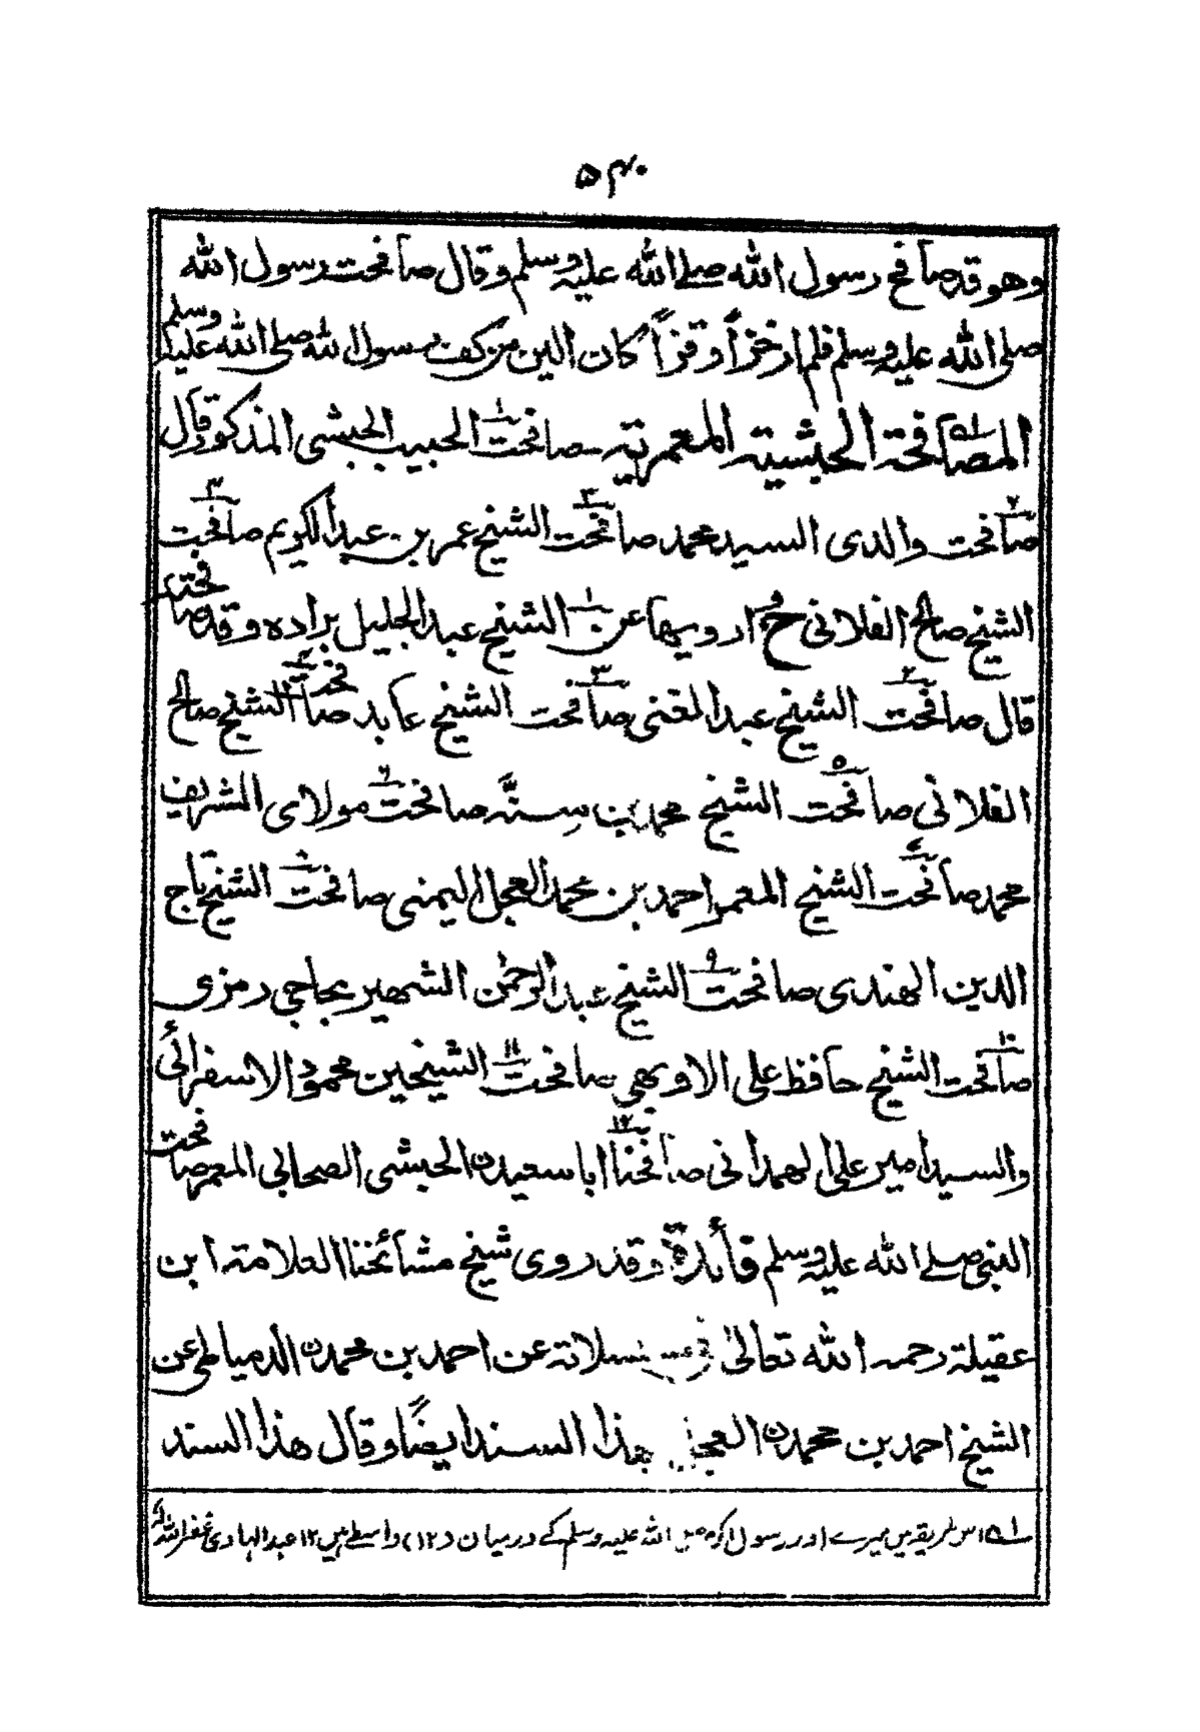 ۵۴۰
وهو قد صافح رسول الله صلے الله عليه وسلم وقال صافحت رسول الله
صلى الله عليه وسلم فلم ار خزاً وقزاً كان الين من كف رسول الله صلى الله عليه وسلم
المصافحة الحبشية المعمرية صافحت الحبيب الحبشي المذكور قال
صافحت والدى السيد محمد صافحت الشيخ عمر بن عبد الكريم صافحت
الشيخ صالح الفلانى ح وارويها عن الشيخ عبد الجليل براده وقد صافحته
قال صافحت الشيخ عبد المغنى صافحت الشيخ عابد صافحت الشيخ صالح
الفلانى صافحت الشيخ محمد بن سِنَّه صافحت مولاى الشريف
محمد صافحت الشيخ المعمر احمد بن محمد العجل اليمنى صافحت الشيخ تاج
الدين الهندى صافحت الشيخ عبد الرحمٰن الشهير بحاجي رمزى
صافحت الشيخ حافظ على الاوبهي صافحت الشيخين محمود الاسفرائى
والسيد امير على الهمدانى صافحنا ابا سعيدن الحبشى الصحابى المعمر صافحت
النبى صلے الله عليه وسلم فأئدة وقد روى شيخ مشائخنا العلامة ابن
عقيلة رحمه الله تعالىٰ فى مسلسلاته عن احمد بن محمدن الدمياطى عن
الشيخ احمد بن محمدن العجل بهذا السند ايضًا وقال هذا السند
؎۱۵ اس طريقه ميں ميرے اور رسول اكرم صلى الله عليه وسلم كے درميان (۱۲) واسطے ہيں ۱۲ عبد الهادى غفر الله له